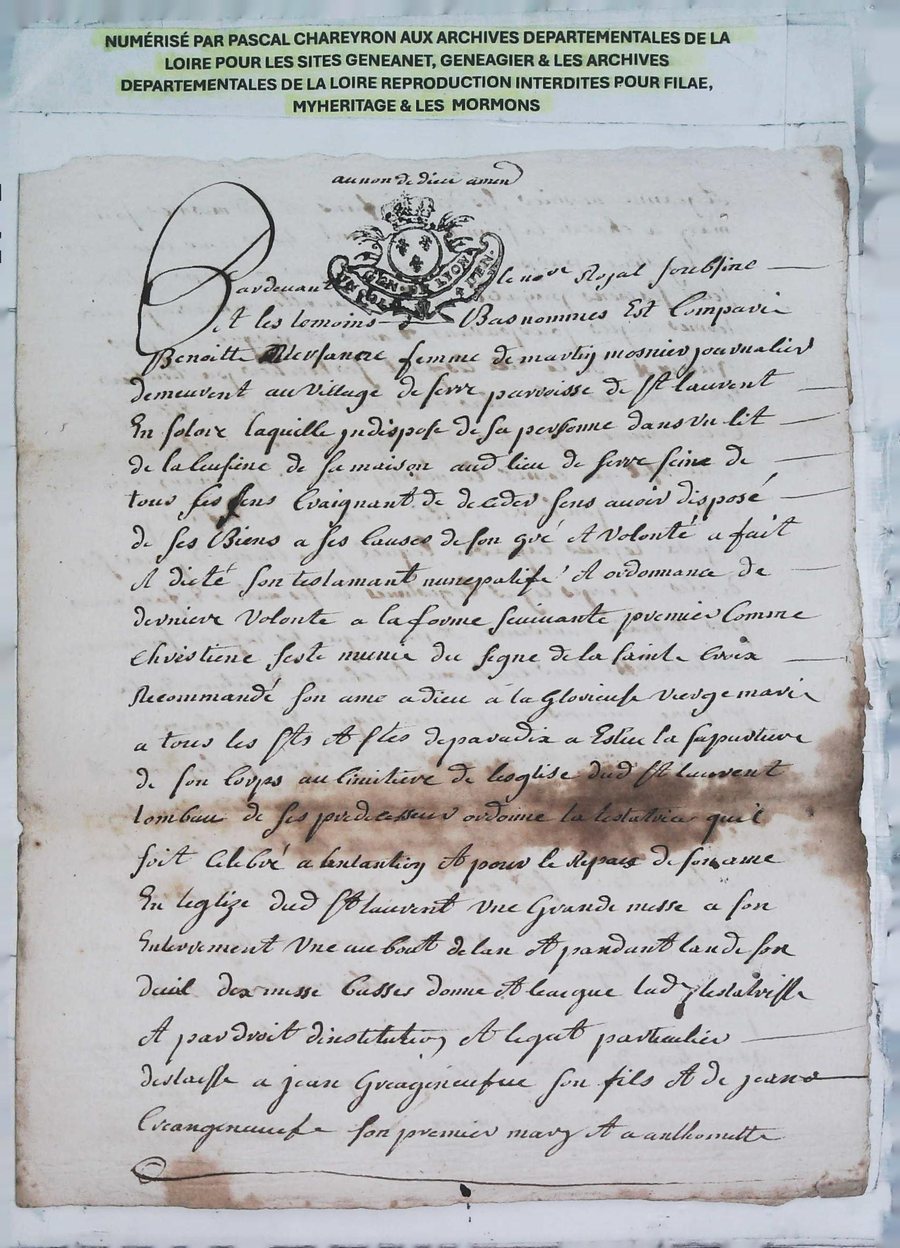 NUMÉRISÉ PAR PASCAL CHAREYRON AUX ARCHIVES DEPARTEMENTALES DE LA
LOIRE POUR LES SITES GENEANET, GENEAGIER & LES ARCHIVES
DEPARTEMENTALES DE LA LOIRE REPRODUCTION INTERDITES POUR FILAE,
MYHERITAGE & LES MORMONS
au non de dieu amen
GEN. DE LYON
Pardevant le nore Royal soubsine
et les temoins Bas nommes Est Comparue
Benoitte femme de martin mosnier journalier
demeurent au village de serre parroisse de st laurent
En soloix laquille jndispose de sa personne dans un lit
de la Cusine de sa maison aud lieu de serre seine de
tous ses sens Craignant de deceder sens avoir disposé
de ses Biens a ses Causes de son gré et volonté a fait
et dicté son testamant nuncpatife et ordonnance de
derniere volonte a la forme suivante premier Comme
Chrestiene s'este munie du signe de la sainte Croix
Recommandé son ame a dieu à la Glorieuse vierge marie
a tous les sts et stes de paradix a Esleu la sepulture
de son Corps au Cimitiere de lesglise dud st laurent
tombau de ses predecesseur ordonne la testatrice quil
soit Celebré a lintantion et pour le Repaus de son ame
En leglize dud st laurent une Grande messe a son
Enterrement une au bout de lan et pandant lan de son
deuil dix messe basses donne et leegue lad testatrisse
et par droit dinstitution et legat particulier
deslaisse a jean son fils et de jean
son premier mary et a anthomette